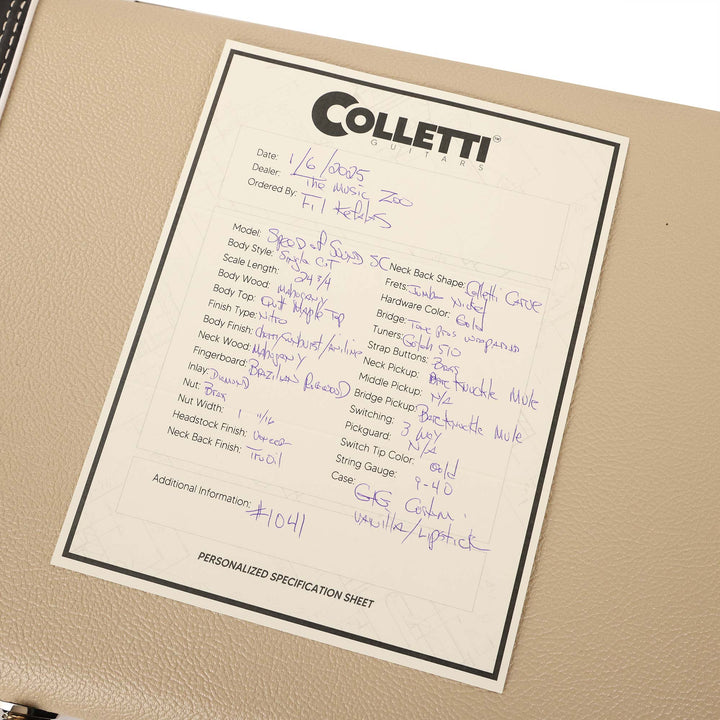 COLLETTI™
GUITARS
Date: 1/6/2025
Dealer: The Music Zoo
Ordered By: Fil
Model: Speed of Sound SC
Body Style: Single Cut
Scale Length: 24 3/4
Body Wood: Mahogany
Body Top: Maple Top
Finish Type: Nitro
Body Finish: Cherry Sunburst/Aniline
Neck Wood: Mahogany
Fingerboard: Brazilian Rosewood
Inlay: Diamond
Nut: Brass
Nut Width: 1 11/16
Headstock Finish: Veneer
Neck Back Finish: Tru Oil
Neck Back Shape: Colletti Carve
Frets: Jumbo Nickel
Hardware Color: Gold
Bridge: Tone Pros wraparound
Tuners: Gotoh 510
Strap Buttons: Brass
Neck Pickup: Bareknuckle Mule
Middle Pickup: N/A
Bridge Pickup: Bareknuckle Mule
Switching: 3 Way
Pickguard: N/A
Switch Tip Color: Gold
String Gauge: 9-40
Case: G&G Custom
Vanilla/Lipstick
Additional Information: #1041
PERSONALIZED SPECIFICATION SHEET